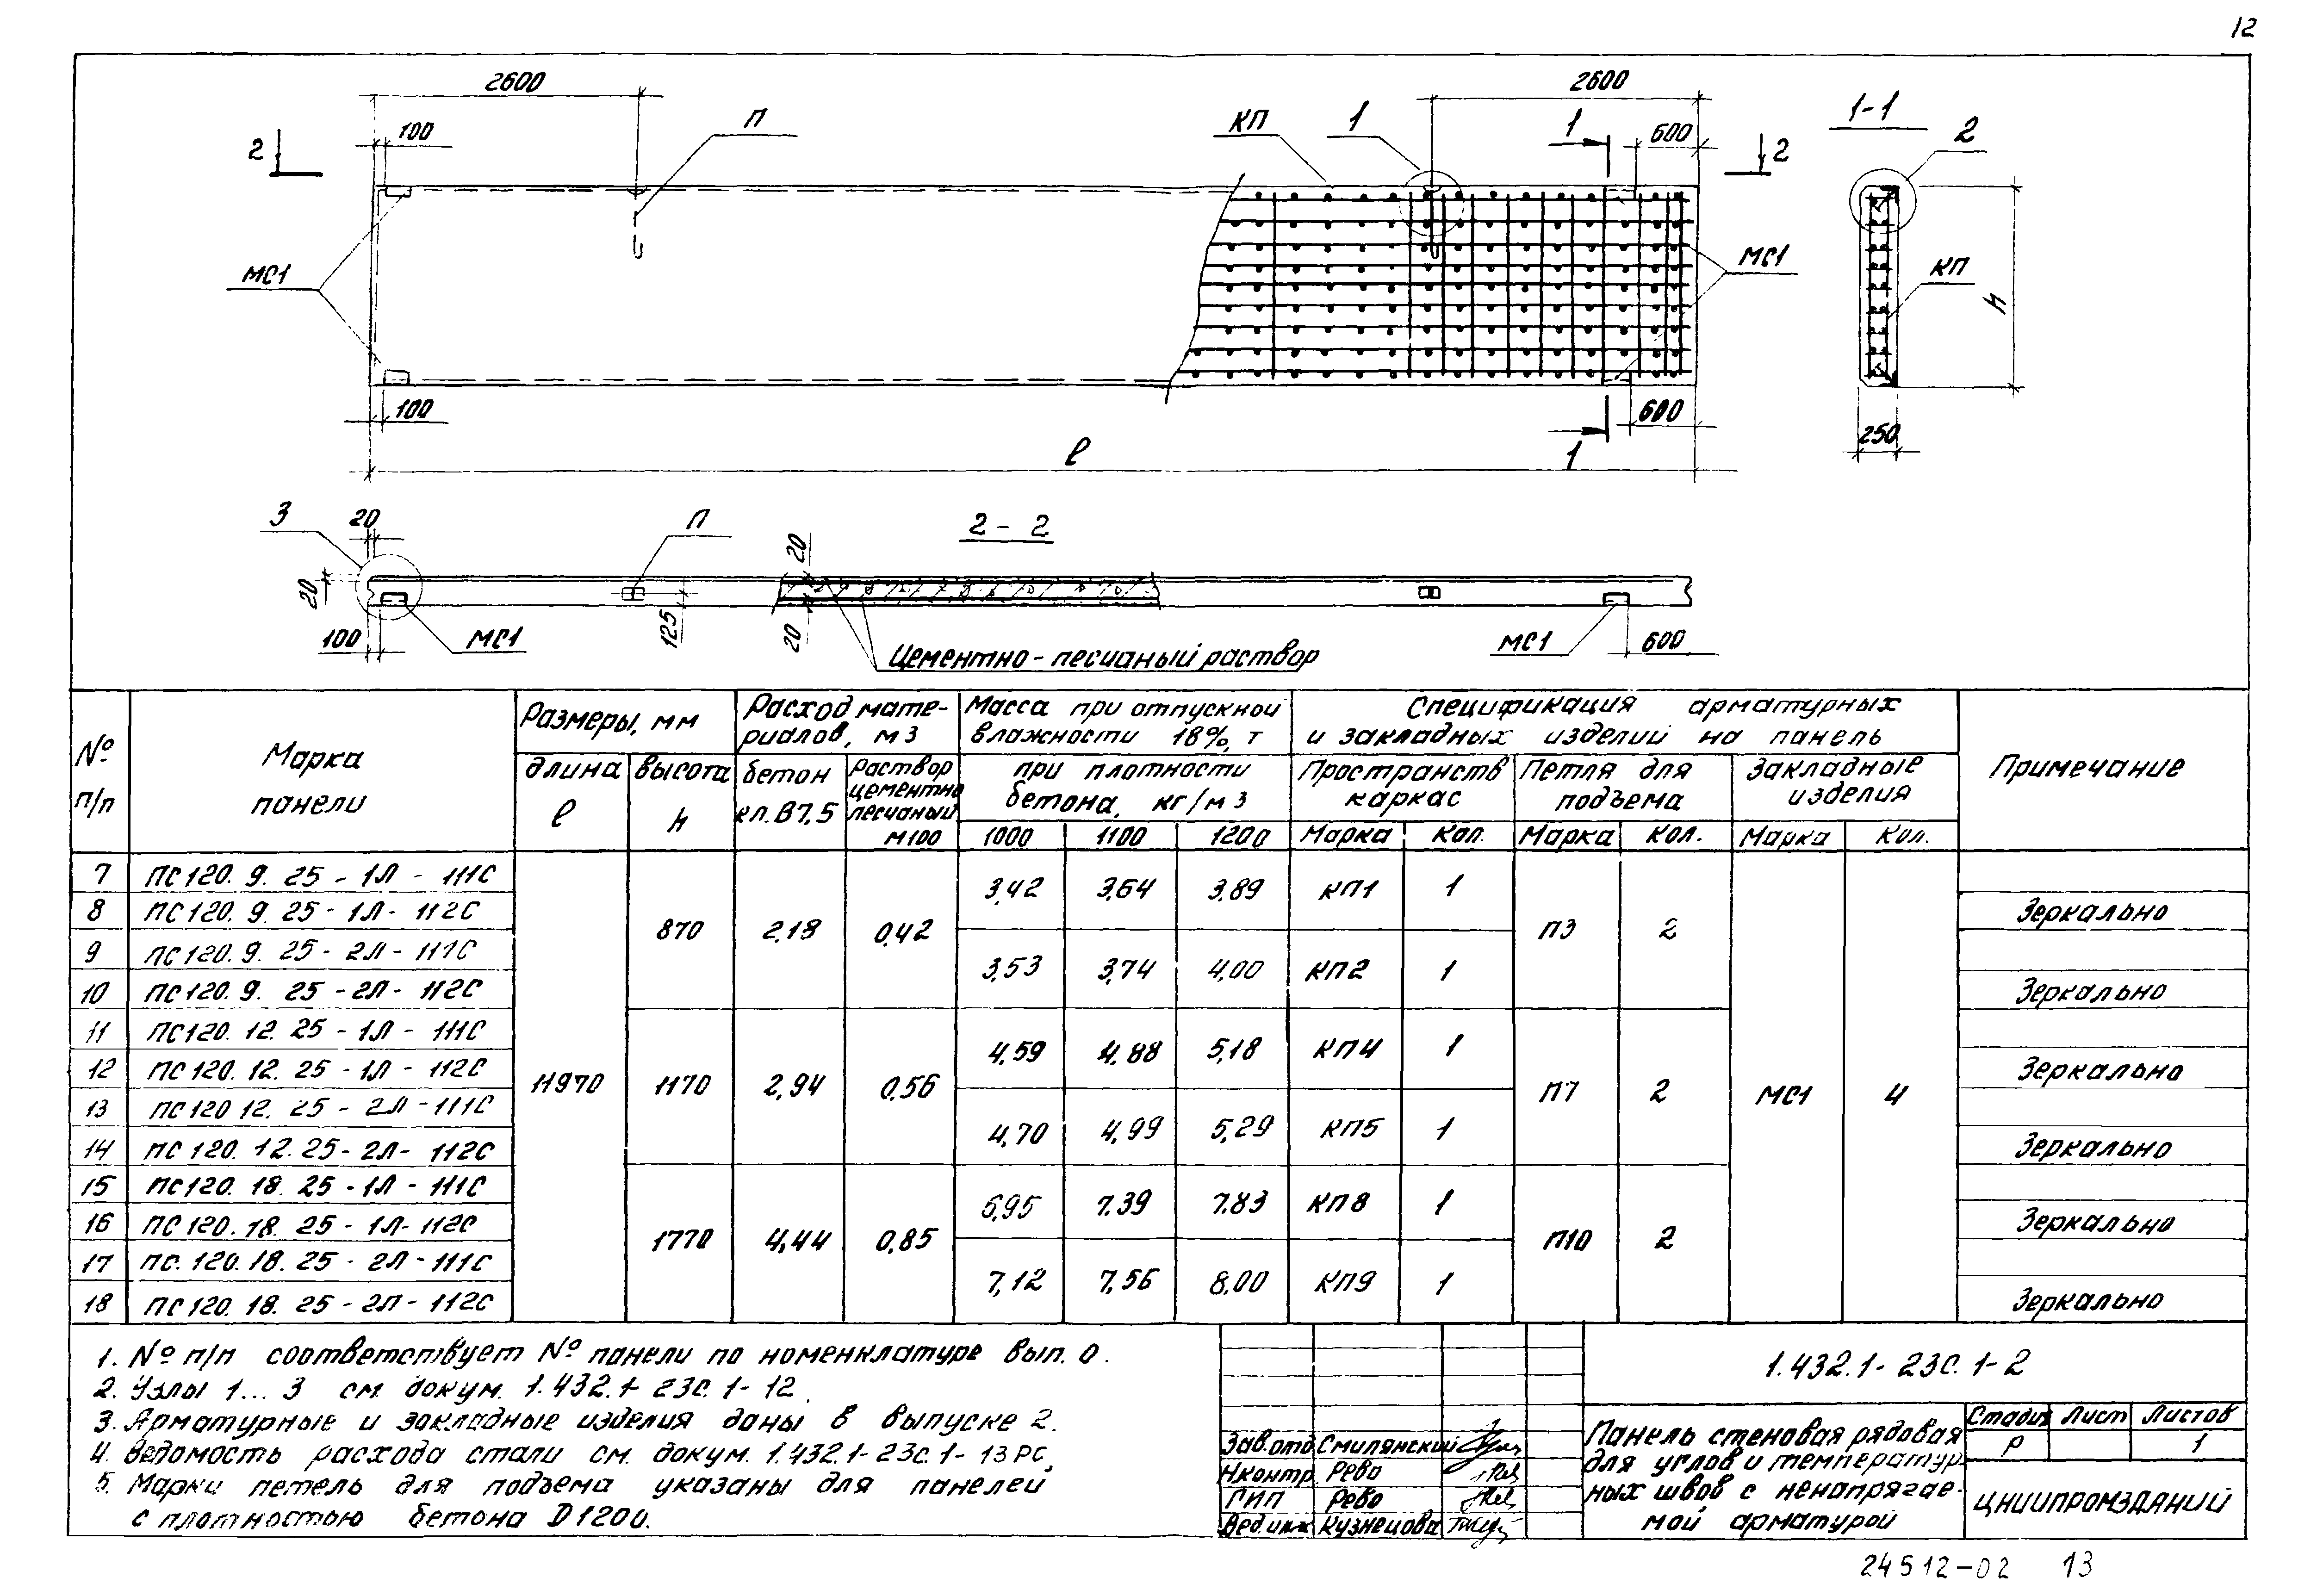 12
2600
2600
100
П
КП
1
1
600
1-1
2
2
2
МС1
МС1
КП
h
100
600
250
l
1
3
20
П
2-2
20
20
100
МС1
125
20
Цементно-песчаный раствор
МС1
600
№ п/п
Марка панели
Размеры, мм
длина l
высота h
Расход материалов, м3
бетон кл. В7,5
Раствор цементно песчаный М100
Масса при отпускной влажности 18%, т
при плотности бетона, кг/м3
1000 1100 1200
Спецификация арматурных и закладных изделий на панель
Пространств каркас
Марка Кол.
Петля для подъема
Марка Кол.
Закладные изделия
Марка Кол.
Примечание
7 ПС120.9.25-1Л-111С
8 ПС120.9.25-1Л-112С Зеркально
9 ПС120.9.25-2Л-111С
10 ПС120.9.25-2Л-112С Зеркально
870 2,18 0,42
3,42 3,64 3,89 КП1 1
3,53 3,74 4,00 КП2 1
П3 2
11 ПС120.12.25-1Л-111С
12 ПС120.12.25-1Л-112С Зеркально
13 ПС120 12.25-2Л-111С
14 ПС120.12.25-2Л-112С Зеркально
11970
1170 2,94 0,56
4,59 4,88 5,18 КП4 1
4,70 4,99 5,29 КП5 1
П7 2
МС1 4
15 ПС120.18.25-1Л-111С
16 ПС120.18.25-1Л-112С Зеркально
17 ПС.120.18.25-2Л-111С
18 ПС120.18.25-2Л-112С Зеркально
1770 4,44 0,85
6,95 7,39 7.83 КП8 1
7,12 7,56 8,00 КП9 1
П10 2
1. № п/п соответствует № панели по номенклатуре вып. 0.
2. Узлы 1...3 см. докум. 1.432.1-23С.1-12.
3. Арматурные и закладные изделия даны в выпуске 2.
4. Ведомость расхода стали см. докум. 1.432.1-23С.1-13РС,
5. Марки петель для подъема указаны для панелей
с плотностью бетона D1200.
Зав.отд Смилянский
Н.контр. Рево
ГИП Рево
Вед.инж Кузнецова
1.432.1-23С.1-2
Панель стеновая рядовая
для углов и температур
ных швов с ненапрягае-
мой арматурой
Стадия Лист Листов
Р 1
ЦНИИПРОМЗДАНИЙ
24512-02 13